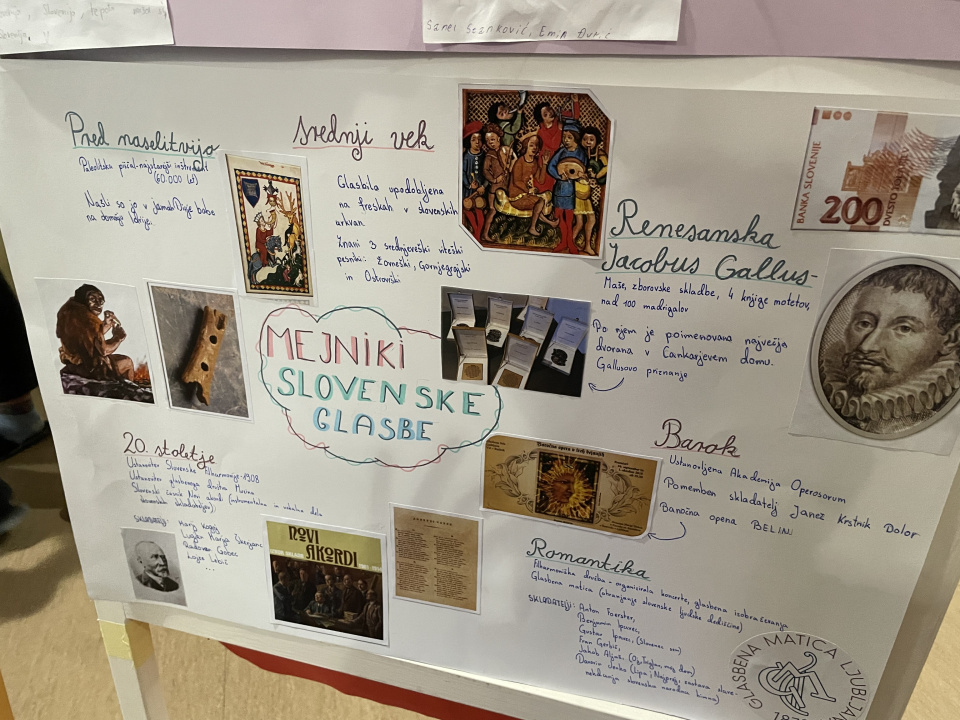 Sanel Stanković, Emin Đurić
Pred naselitvijo
Paleolitska piščal-najstarejši inštrument
(60.000 let)
Našli so jo v jami Divje babe
na domačiji Idrije.
Srednji vek
Glasbila upodobljena
na freskah v slovenskih
cerkvah.
Znani 3 srednjeveški viteški
pesniki: Žovneški, Gornjegrajski
in Ostrovrški
BANKA SLOVENIJE
200
DVESTO
Renesansa
Jacobus Gallus-
Maše, zborovske skladbe, 4 knjige motetov,
nad 100 madrigalov
Po njem je poimenovana največja
dvorana v Cankarjevem domu.
Gallusovo priznanje
MEJNIKI
SLOVENSKE
GLASBE
Barok
Ustanovljena Akademija Operosorum
Pomemben skladatelj Janez Krstnik Dolar
Baročna opera BELIN
20. stoletje
Ustanovitev Slovenske filharmonije-1908
Ustanovitev glasbenega društva
Slovenski časnik Novi akordi (instrumentalna in vokalna dela
slovenskih skladateljev)
SKLADATELJI: Marij Kogoj
Lucijan Marija Škerjanc
Radovan Gobec
Lojze Lebič
...
NOVI
AKORDI
Romantika
Filharmonična družba - organizirala koncerte, glasbena izobraževanja
Glasbena matica (ohranjanje slovenske ljudske dediščine)
SKLADATELJI: Anton Foerster,
Benjamin Ipavec,
Gustav Ipavec, (Slovenec sem)
Fran Gerbič,
Jakob Aljaž, (Oj, Triglav, moj dom)
Davorin Jenko (Lipa, Naprej, zastava slave-
nekdanja slovenska narodna himna)
GLASBENA MATICA LJUBLJANA